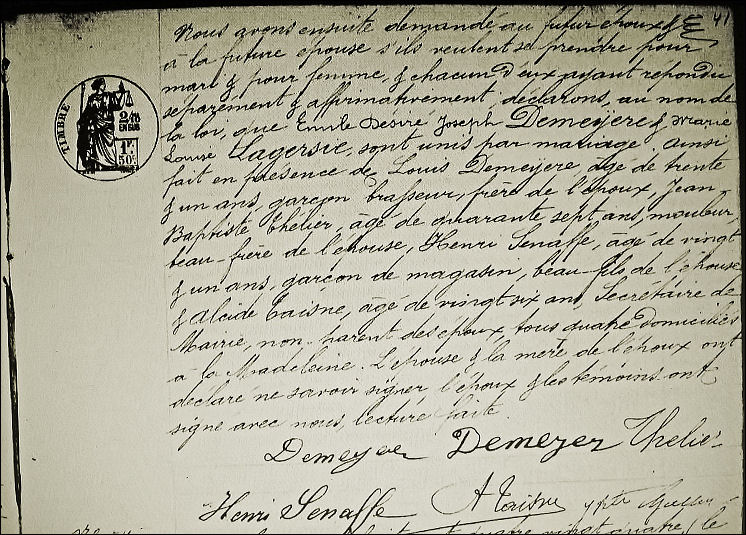 41
Nous avons ensuite demandé au futur époux &
à la future épouse s'ils veulent se prendre pour
mari & pour femme, & chacun d'eux ayant répondu
séparément & affirmativement, déclarons, au nom de
la loi, que Emile Désiré Joseph Demeyere & Marie
Louise Lagersie, sont unis par mariage. Ainsi
fait en présence de Louis Demeyere âgé de trente
& un ans, garçon brasseur, frère de l'époux, Jean
Baptiste Thélier, âgé de quarante sept ans, mouleur,
beau-frère de l'épouse, Henri Senaffe, âgé de vingt
& un ans, garçon de magasin, beau-fils de l'épouse
& Alcide Taisne, âgé de vingt six ans, Secrétaire de
Mairie, non-parent des époux tous quatre domiciliés
à la Madeleine. L'épouse & la mère de l'époux ont
déclaré ne savoir signer, l'époux & les témoins ont
signé avec nous, lecture faite.
TIMBRE
2/10
EN SUS
1F
50c
Demeyer Demeyer Thelier
Henri Senaffe A Taisne
quatre vingt quatre, le